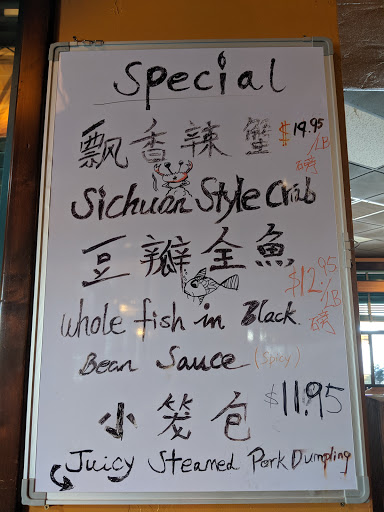 Special
飘香辣蟹 $19.95/LB 磅
Sichuan Style Crab
豆瓣全魚 $12.95/LB 磅
whole fish in Black
Bean Sauce (Spicy)
小笼包 $11.95
Juicy Steamed Pork Dumpling